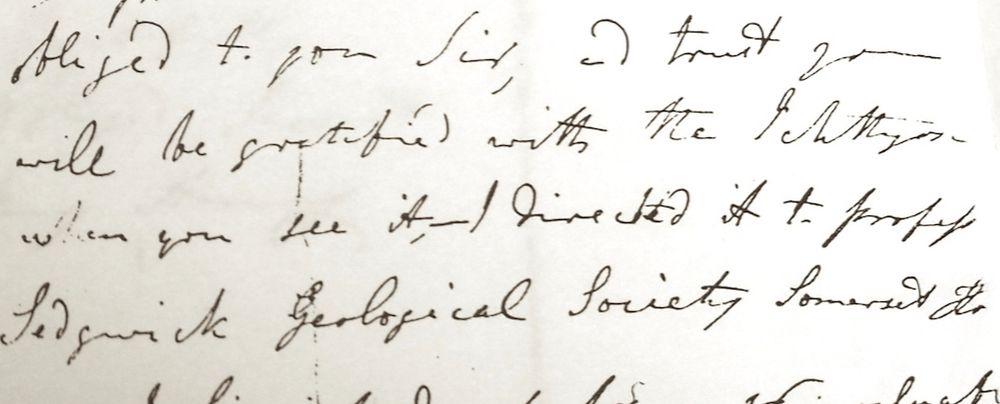 obliged to you Sir, and trust you
will be gratified with the Ichthyos
when you see it, – I directed it to profess
Sedgwick Geological Society Somerset Ho